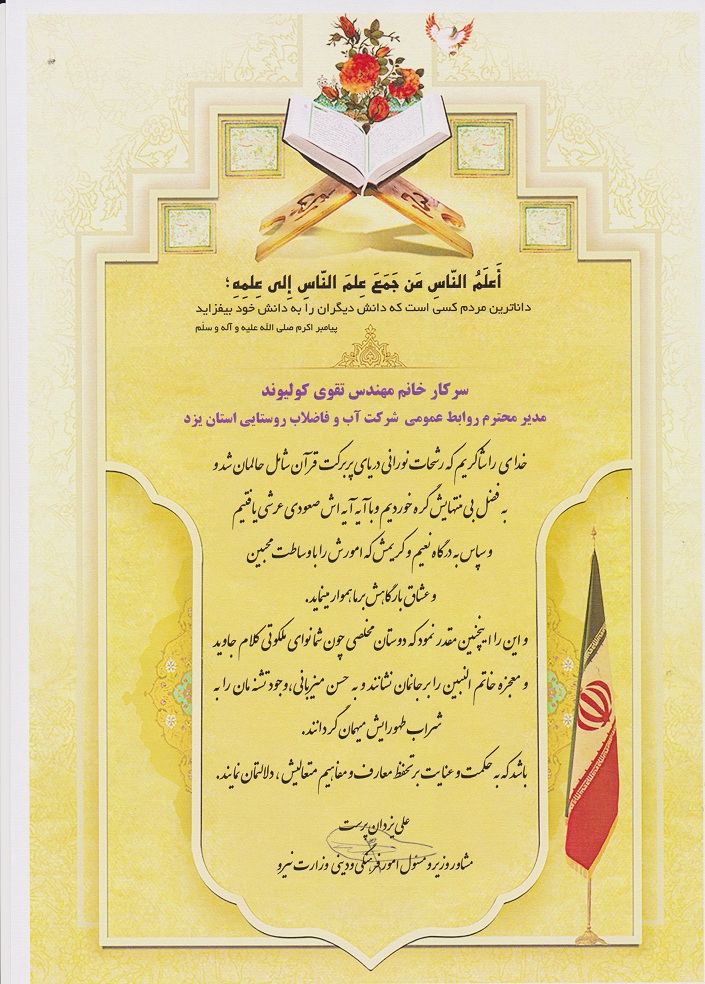 أَعلَمُ النّاسِ مَن جَمَعَ عِلمَ النّاسِ إِلی عِلمِهِ؛
داناترین مردم کسی است که دانش دیگران را به دانش خود بیفزاید
پیامبر اکرم صلی الله علیه و آله و سلّم
سرکار خانم مهندس تقوی کولیوند
مدیر محترم روابط عمومی شرکت آب و فاضلاب روستایی استان یزد
خدای را شاکریم که رشحات نورانی دریای پر برکت قرآن شامل حالمان شد و
به فضل بی منتهایش گره خوردیم و با آیه آیه اش صعودی عرشی یافتیم
و سپاس به درگاه نعیم و کریمش که امورش را با وساطت محبین
و عشاق بارگاهش بر ما هموار مینماید.
و این را اینچنین مقدر نمود که دوستان مخلصی چون شما نوای ملکوتی کلام جاوید
و معجزه خاتم النبین را بر جانمان نشانند و به حسن میزبانی، وجود تشنه مان را به
شراب طهورایش میهمان گردانند.
باشد که به حکمت و عنایت بر تحفظ معارف و مفاهیم متعالیش، دلالتمان نمایند.
علی یزدان پرست
مشاور وزیر و مسئول امور فرهنگی و دینی وزارت نیرو